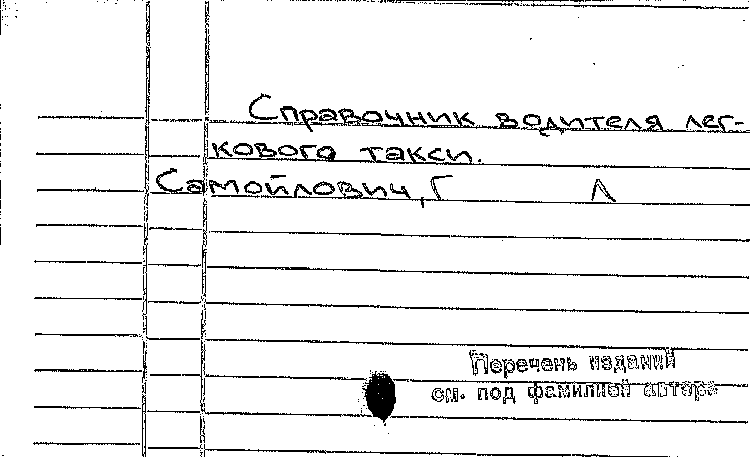 Справочник водителя лег-
кового такси.
Самойлович, Г Л
Перечень изданий
см. под фамилией автора